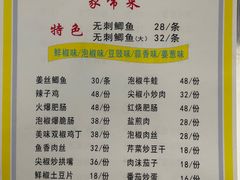 家常菜
特色 无刺鲫鱼 28/条
无刺鲫鱼(大) 32/条
鲜椒味/泡椒味/豆豉味/蒜香味/姜葱味
姜丝鲫鱼 30/条 泡椒牛蛙 48/份
辣子鸡 48/份 尖椒牛蛙 48/份
火爆肥肠 48/份 红烧肥肠 48/份
泡椒爆脆肠 38/份 盐煎肉 28/份
美味双椒鸡丁 38/份 泡椒肉丝 28/份
鱼香肉丝 28/份 芹菜炒豆干 18/份
尖椒炒拱嘴 36/份 肉沫茄子 18/份
鲜椒土豆片 18/份 番茄炒蛋 16/份